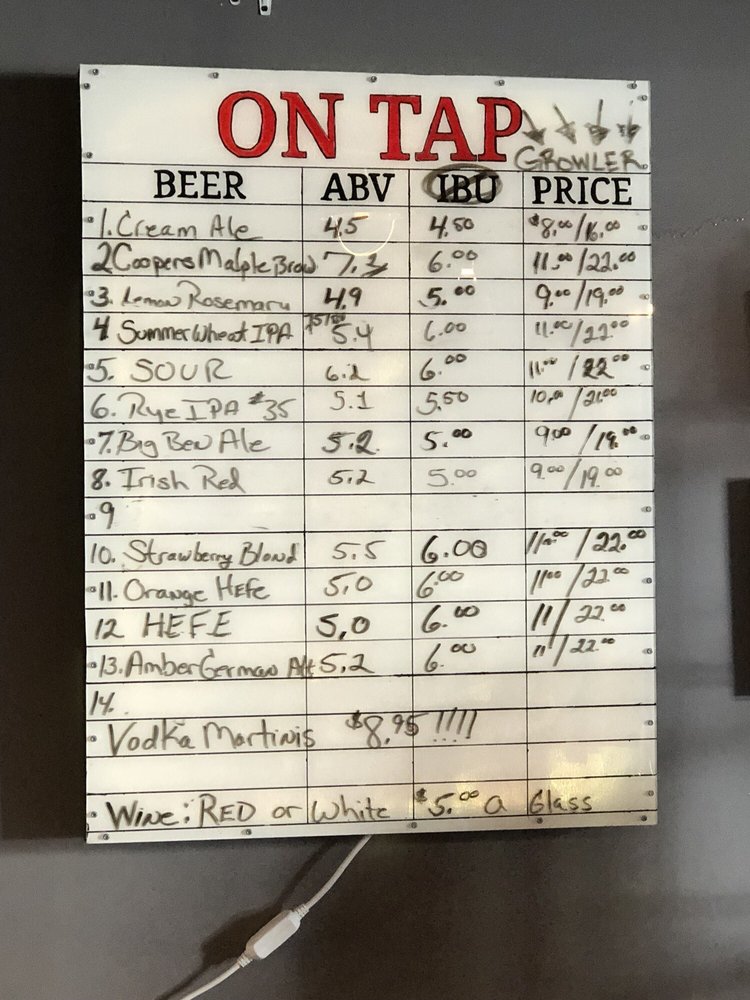 ON TAP
GROWLER
BEER ABV IBU PRICE
1. Cream Ale 4.5 4.50 $8.00/16.00
2 Coopers Malple Brow 7.3 6.00 11.00/22.00
3. Lemon Rosemary 4.9 5.00 9.00/19.00
4 Summer Wheat IPA 5.4 6.00 11.00/22.00
5. SOUR 6.2 6.00 11.00/22.00
6. Rye IPA #35 5.1 5.50 10.00/21.00
7. Big Ben Ale 5.2 5.00 9.00/19.00
8. Irish Red 5.2 5.00 9.00/19.00
9
10. Strawberry Blond 5.5 6.00 11.00/22.00
11. Orange HEfe 5,0 6.00 11.00/22.00
12 HEFE 5,0 6.00 11/22.00
13. Amber German Alt 5.2 6.00 11/22.00
14.
Vodka Martinis $8.95 !!!!
Wine: RED or White $5.00 a Glass